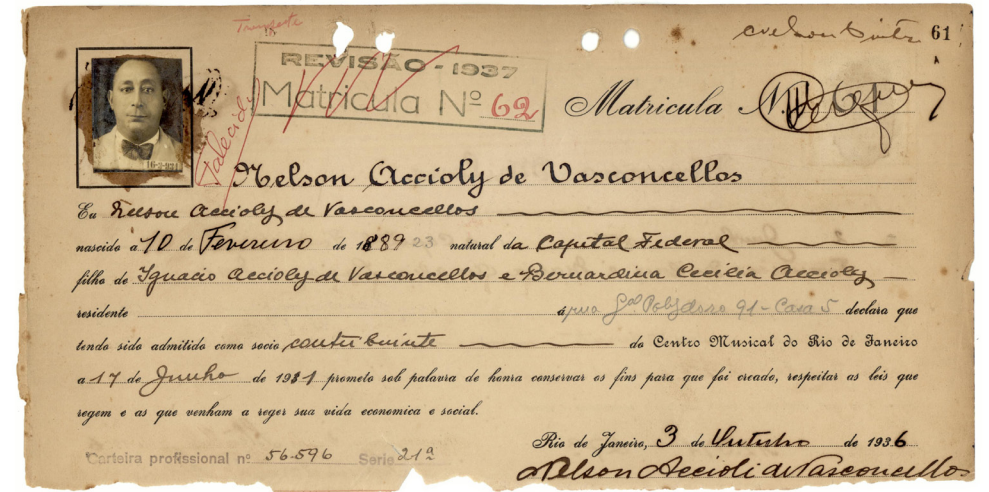 61
REVISÃO - 1937
Matricula Nº 62
Matricula N.
Falecido
Nelson Accioly de Vasconcellos
Eu Nelson Accioly de Vasconcellos
nascido a 10 de Fevereiro de 1889 23 natural da Capital Federal
filho de Ignacio Accioly de Vasconcellos e Bernardina Cecilia Accioly
residente á rua Gal Polydoro 91 - Casa 5 declara que
tendo sido admitido como socio contribuinte do Centro Musical do Rio de Janeiro
a 17 de Junho de 1931 prometo sob palavra de honra conservar os fins para que foi creado, respeitar as leis que
regem e as que venham a reger sua vida economica e social.
Rio de Janeiro, 3 de Outubro de 1936
Carteira profissional nº 56.596 Serie 21ª
Nelson Accioli de Vasconcellos